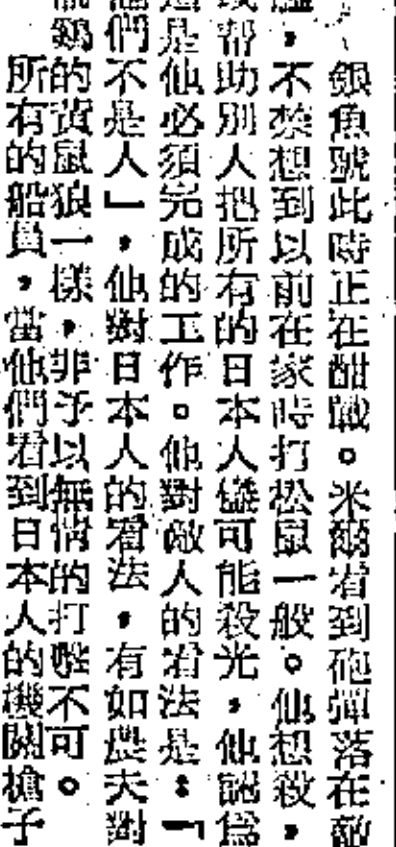 銀魚號此時正在酣戰。米爾看到砲彈落在敵
，不禁想到以前在家時打松鼠一般。他想殺，
帮助別人把所有的日本人儘可能殺光，他認爲
是他必須完成的工作。他對敵人的看法是：「
們不是人」，他對日本人的看法，有如農夫對
鷄的黃鼠狼一樣，非予以無情的打擊不可。
所有的船員，當他們看到日本人的機關槍子